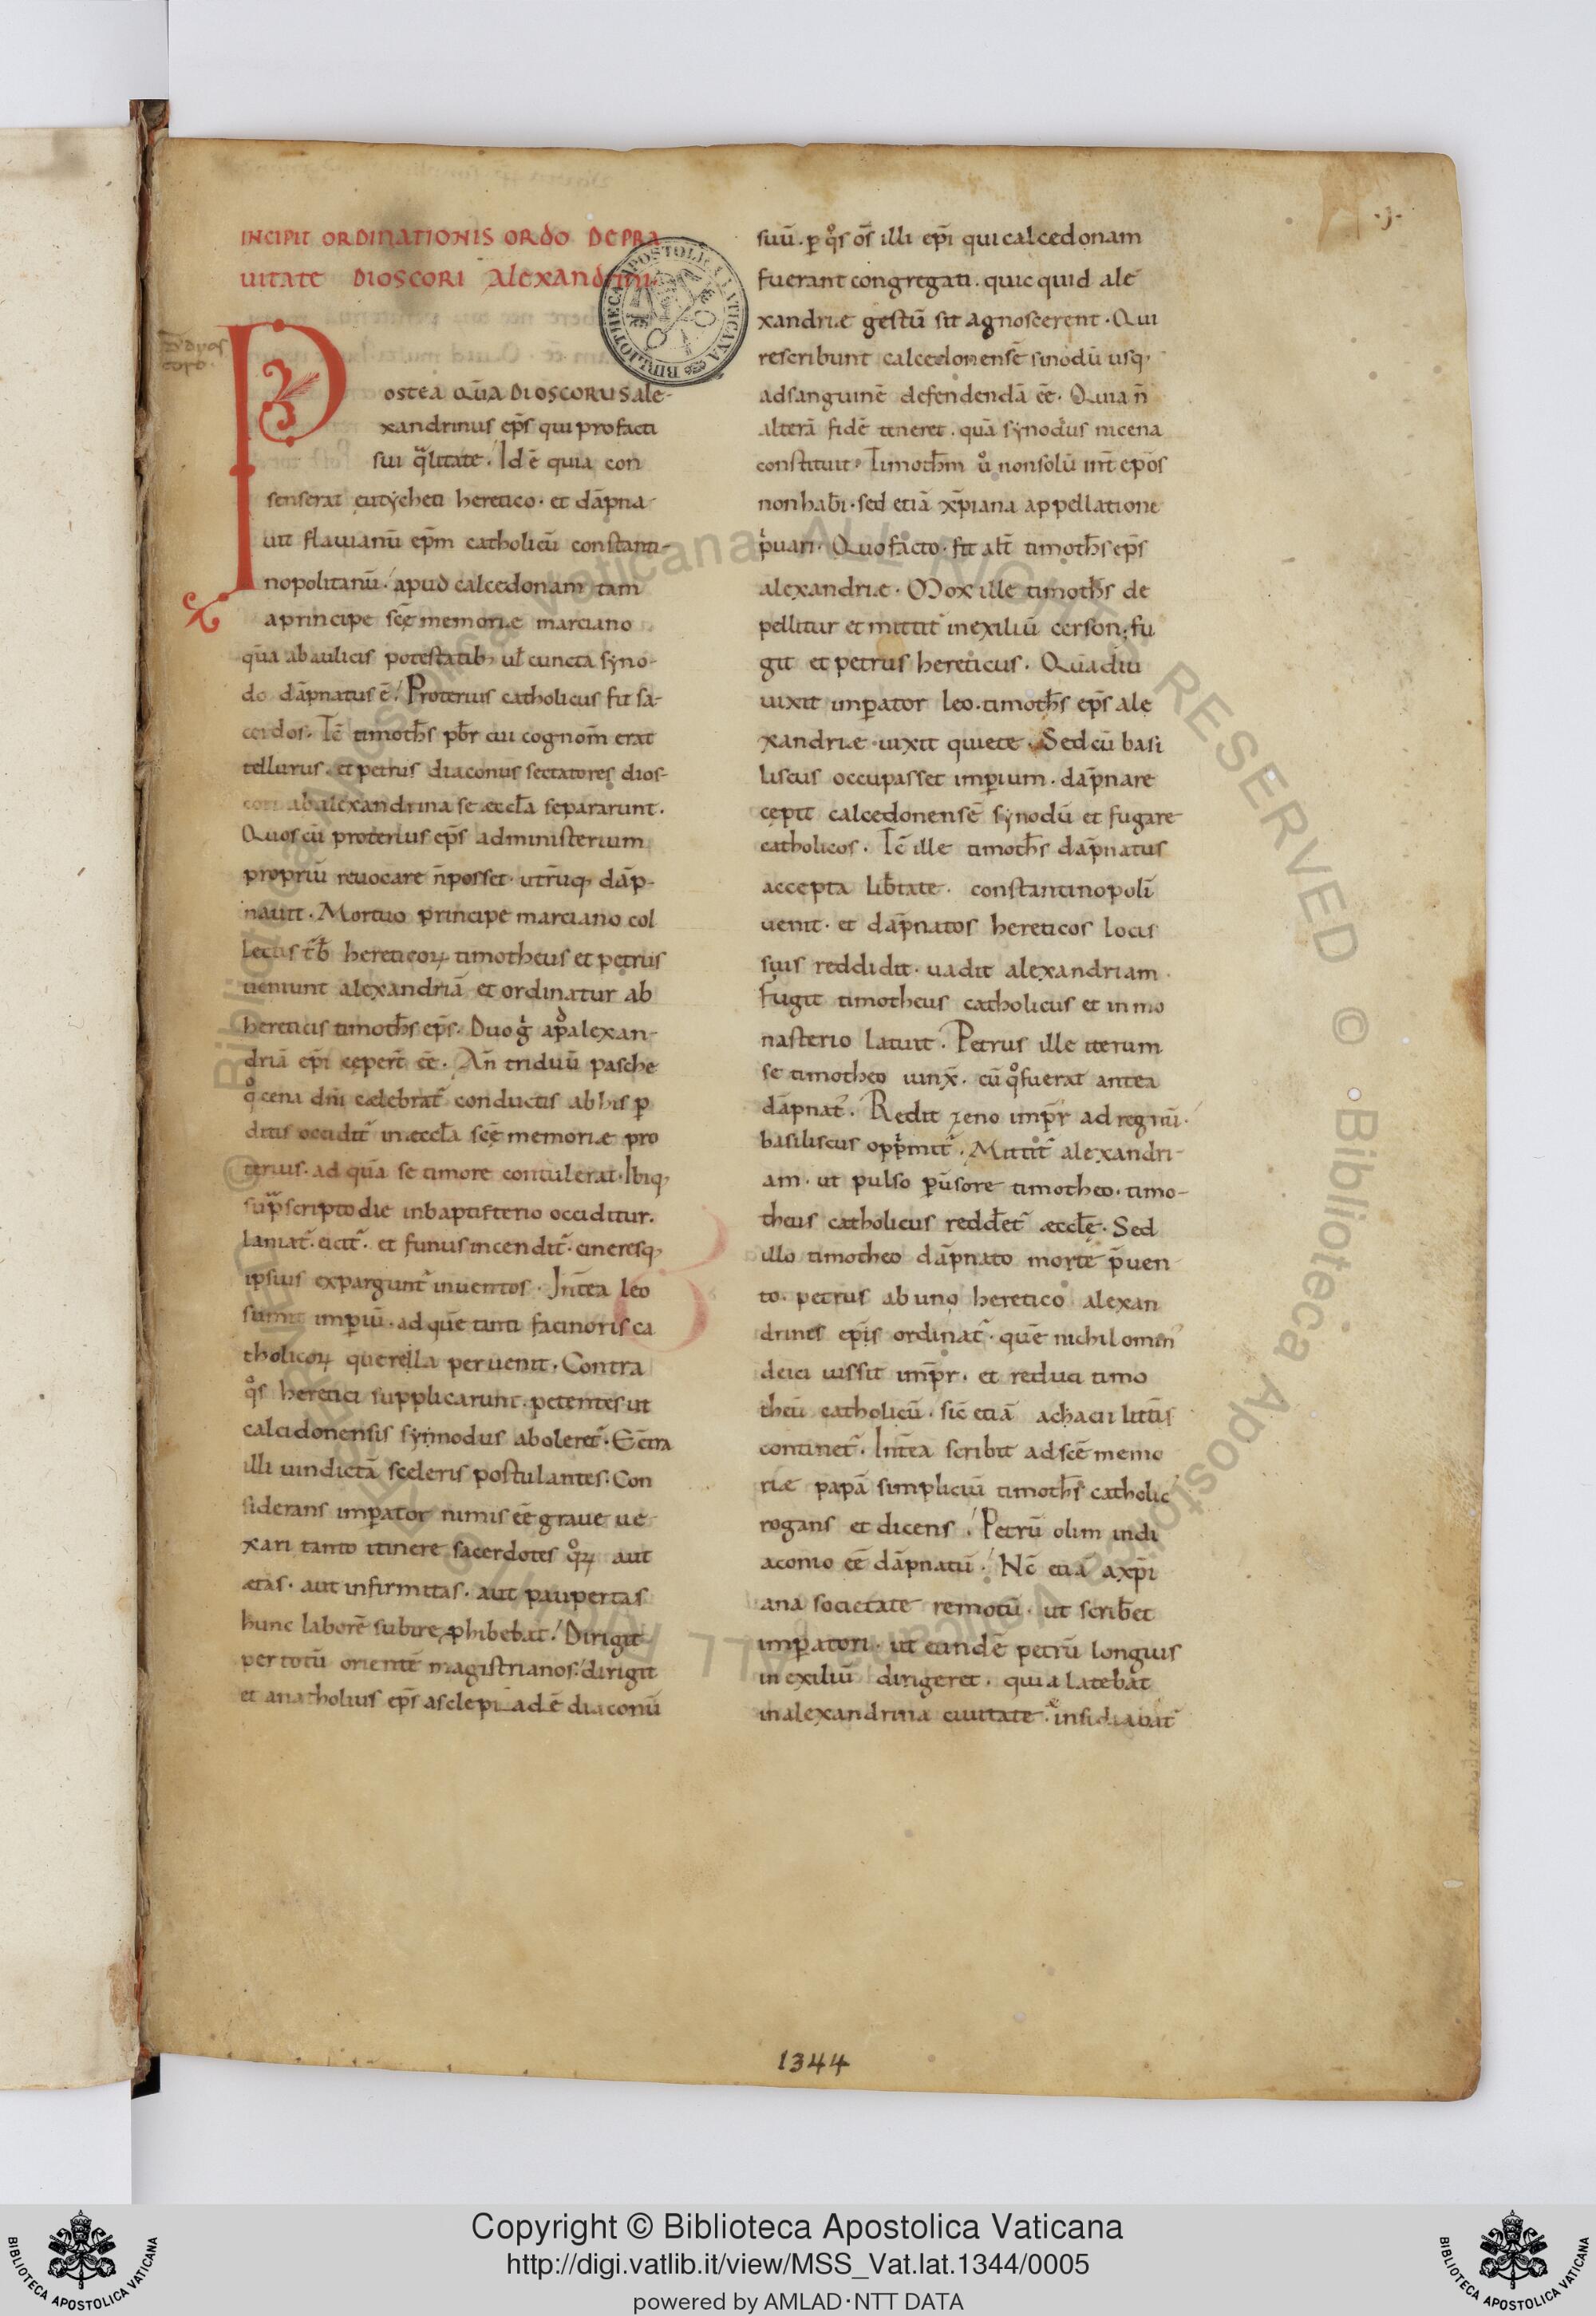 .1.
INCIPIT ORDINATIONIS ORDO DE PRA
UITATE DIOSCORI ALEXANDRINI
Postea quā Dioscorus ale-
xandrinus ep̄s qui pro facti
sui q̄litate. Id ē quia con
senserat eutycheti heretico. et dāpna
uit flauianū ep̄m catholicū constanti-
nopolitanū. apud calcedonam tam
a principe scē memoriæ marciano
quā ab aulicis potestatib; ut cuncta syno-
do dāpnatus ē. Proterius catholicus fit sa-
cerdos. Tc̄ timoth̄s pb̄r cui cognom̄ erat
tellurus. et petrus diaconus sectatores dios-
cori ab alexandrina se æccl̄a separarunt.
Quos cū proterius ep̄s ad ministerium
propriū reuocare n̄ posset. utrūq; dāp-
nauit. Mortuo principe marciano col
lectis t̄b hereticoꝝ timotheus et petrus
ueniunt alexandriā et ordinatur ab
hereticis timoth̄s ep̄s. Duo g̊ ap̄ alexan-
driā ep̄i ceper̄ eē. An̄ triduū pasche
q̊ cena dn̄i celebrat̄ conductis ab his ꝑ
ditis occidit̄ in æccl̄a scē memoriæ pro
terius. ad quā se timore contulerat. Ibiq;
sup̄scripto die in baptisterio occiditur.
laniat̄. eicit̄. et funus incendit̄. cineresq;
ipsius expargunt̄ in uentos. Int̄ea leo
sumit imꝑiū. ad quē tanti facinoris ca
tholicoꝝ querella peruenit. Contra
q̊s heretici supplicarunt. petentes ut
calcidonensis synnodus aboleret̄. Ec̄tra
illi uindictā sceleris postulantes. Con
siderans imꝑator nimis eē graue ue
xari tanto itinere sacerdotes q̊ꝝ aut
ætas. aut infirmitas. aut paupertas
hunc laborē subire ꝓhibebat. Dirigit
per totū orientē magistrianos. dirigit
et anatholius ep̄s asclepiadē diaconū
suū. ꝑ q̊s om̄s illi ep̄i qui calcedonam
fuerant congregati. quicquid ale
xandriæ gestū sit agnoscerent. Qui
rescribunt calcedonensē sinodū usq;
ad sanguinē defendendā eē. Quia n̄
alterā fidē teneret. quā synodus nicena
constituit. Timoth̄m ů non solū int̄ ep̄os
non hab̄i. sed etiā xp̄iana appellatione
p̊uari. Quo facto. fit alt̄ timoth̄s ep̄s
alexandriæ. Mox ille timoth̄s de
pellitur et mittit̄ in exiliū cerson; fu
git et petrus hereticus. Quādiu
uixit imꝑator leo. timoth̄s ep̄s ale
xandriæ uixit quiete. Sed cū basi
liscus occupasset imꝑium. dap̄nare
cepit calcedonensē synodū et fugare
catholicos. Tc̄ ille timoth̄s dap̄natus
accepta lib̄tate. constantinopolī
uenit. et dap̄natos hereticos locis
suis reddidit. uadit alexandriam.
fugit timotheus catholicus et in mo
nasterio latuit. Petrus ille iterum
se timotheo iunx̄. cū q̊ fuerat antea
dāpnat̕. Redit zeno imp̄r ad regnū.
basiliscus opp̊mit̄. Mittit̄ alexandri-
am. ut pulso ꝑuasore timotheo. timo-
theus catholicus redd̄et̄ æccl̄ę. Sed
illo timotheo dāpnato morte p̄uen
to. petrus ab uno heretico alexan
drines ep̄is ordinat̄. quē nichilomin̕
deici iussit imp̄r. et reduci timo
theū catholicū. sic̄ etiā achacii litt̄is
continet̄. Int̄ea scribit ad scē memo
riæ papā simpliciū timoth̄s catholic̕
rogans et dicens. Petrū olim in di
aconio eē dāpnatū. Nc̄ etiā a xp̄i
ana societate remotū. ut scrib̄et
imꝑatori. ut eundē petrū longius
in exiliū dirigeret. quia latebat
in alexandrina ciuitate. insidiabat̄
1344
BIBLIOTHECA APOSTOLICA VATICANA
© Biblioteca Apostolica Vaticana. ALL RIGHTS RESERVED
Copyright © Biblioteca Apostolica Vaticana
http://digi.vatlib.it/view/MSS_Vat.lat.1344/0005
powered by AMLAD·NTT DATA
BIBLIOTECA APOSTOLICA VATICANA
BIBLIOTECA APOSTOLICA VATICANA